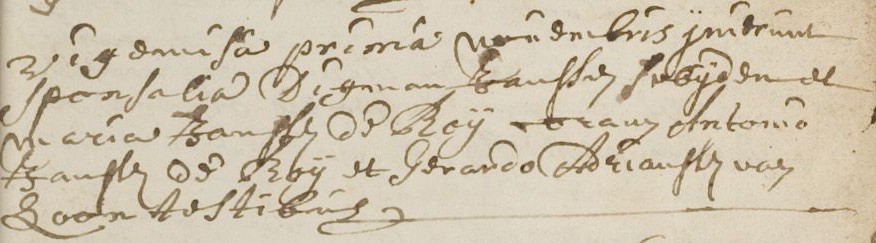 Vigemisa prima novembris jnierunt
sponsalia Digman Janssen et
maria Janssen de Roy coram Antonio
Janssen de Roy et Gerardo Adrianssen van
Loon testibus